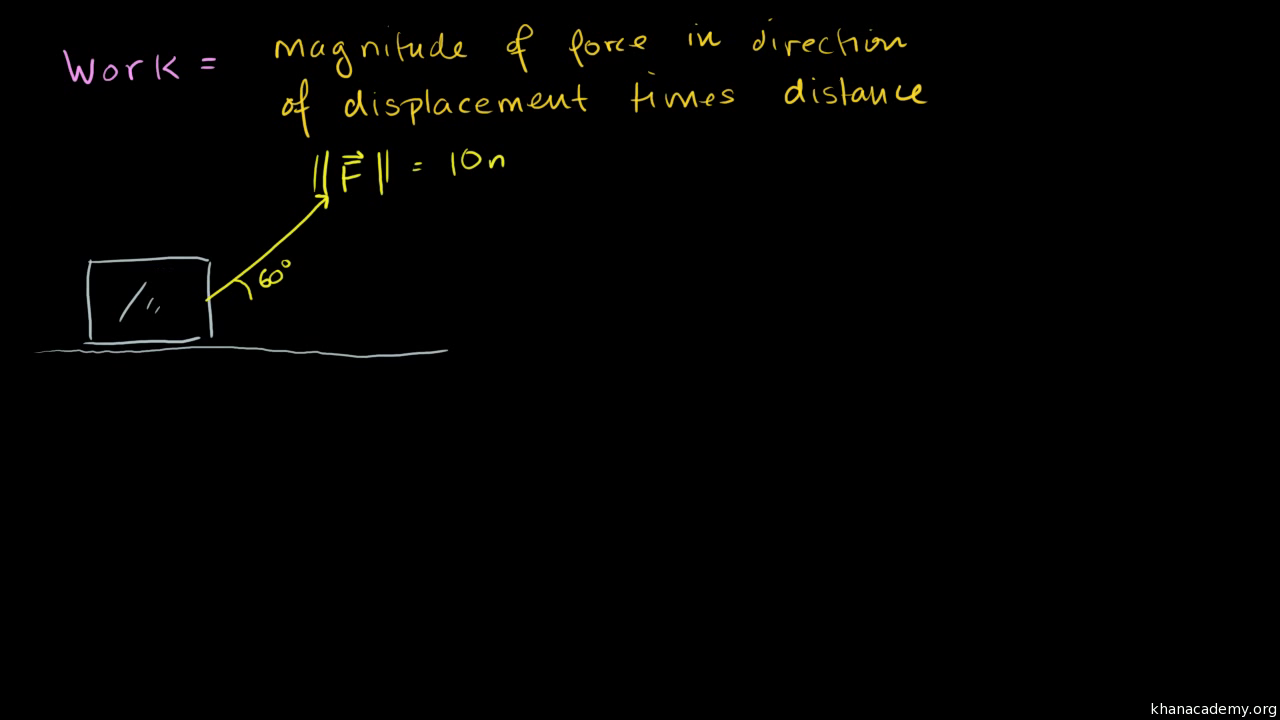 Work = magnitude of force in direction
of displacement times distance
||F⃗|| = 10n
60°
khanacademy.org